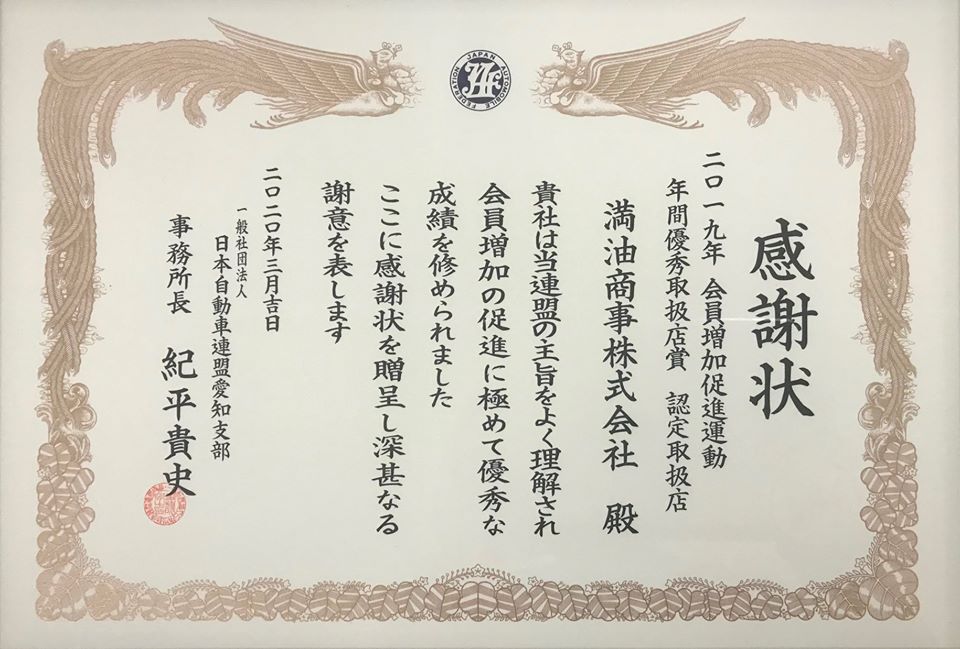 JAPAN AUTOMOBILE FEDERATION
JAF
感謝状
二〇一九年 会員増加促進運動
年間優秀取扱店賞 認定取扱店
満油商事株式会社 殿
貴社は当連盟の主旨をよく理解され
会員増加の促進に極めて優秀な
成績を修められました
ここに感謝状を贈呈し深甚なる
謝意を表します
二〇二〇年三月吉日
一般社団法人
日本自動車連盟愛知支部
事務所長 紀平貴史